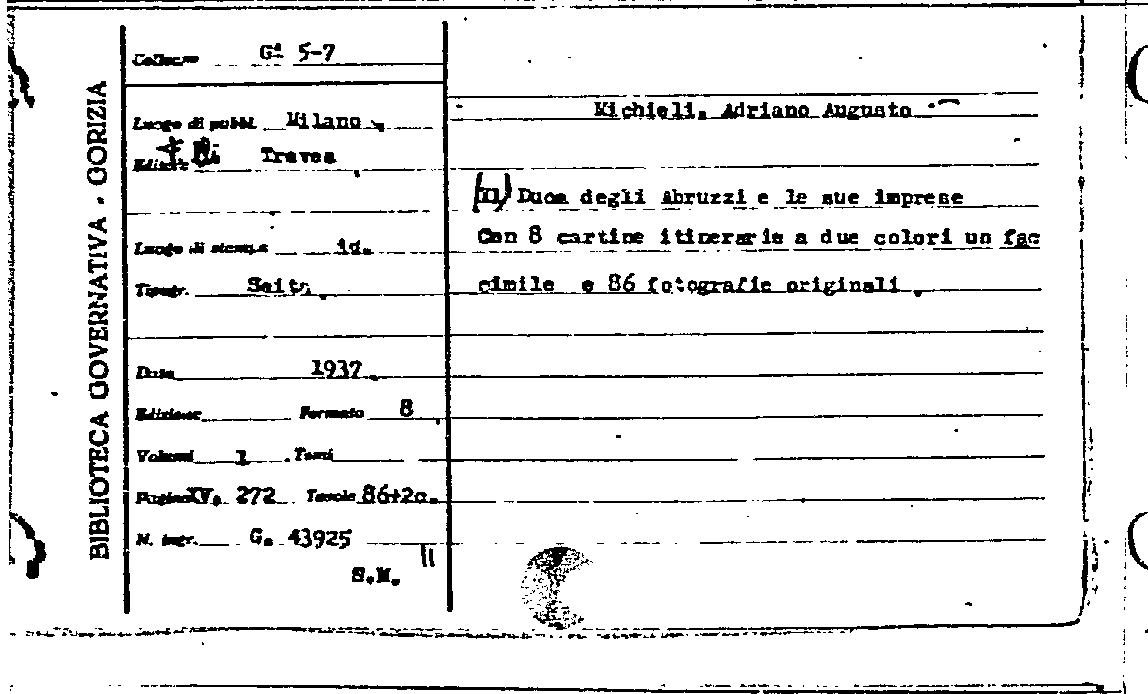 BIBLIOTECA GOVERNATIVA - GORIZIA
Collocaz. Gª 5-7
Luogo di pubbl. Milano
Editore Treves
Luogo di stampa id.
Tipogr.
Data 1937
Edizione Formato 8
Volumi 1 Tomi
Pagine XV. 272 Tavole 86+2c.
N. ingr. G. 43925
S.M.
Michieli, Adriano Augusto
(Il) Duca degli Abruzzi e le sue imprese
Con 8 cartine itinerarie a due colori un fac
cimile e 86 fotografie originali .